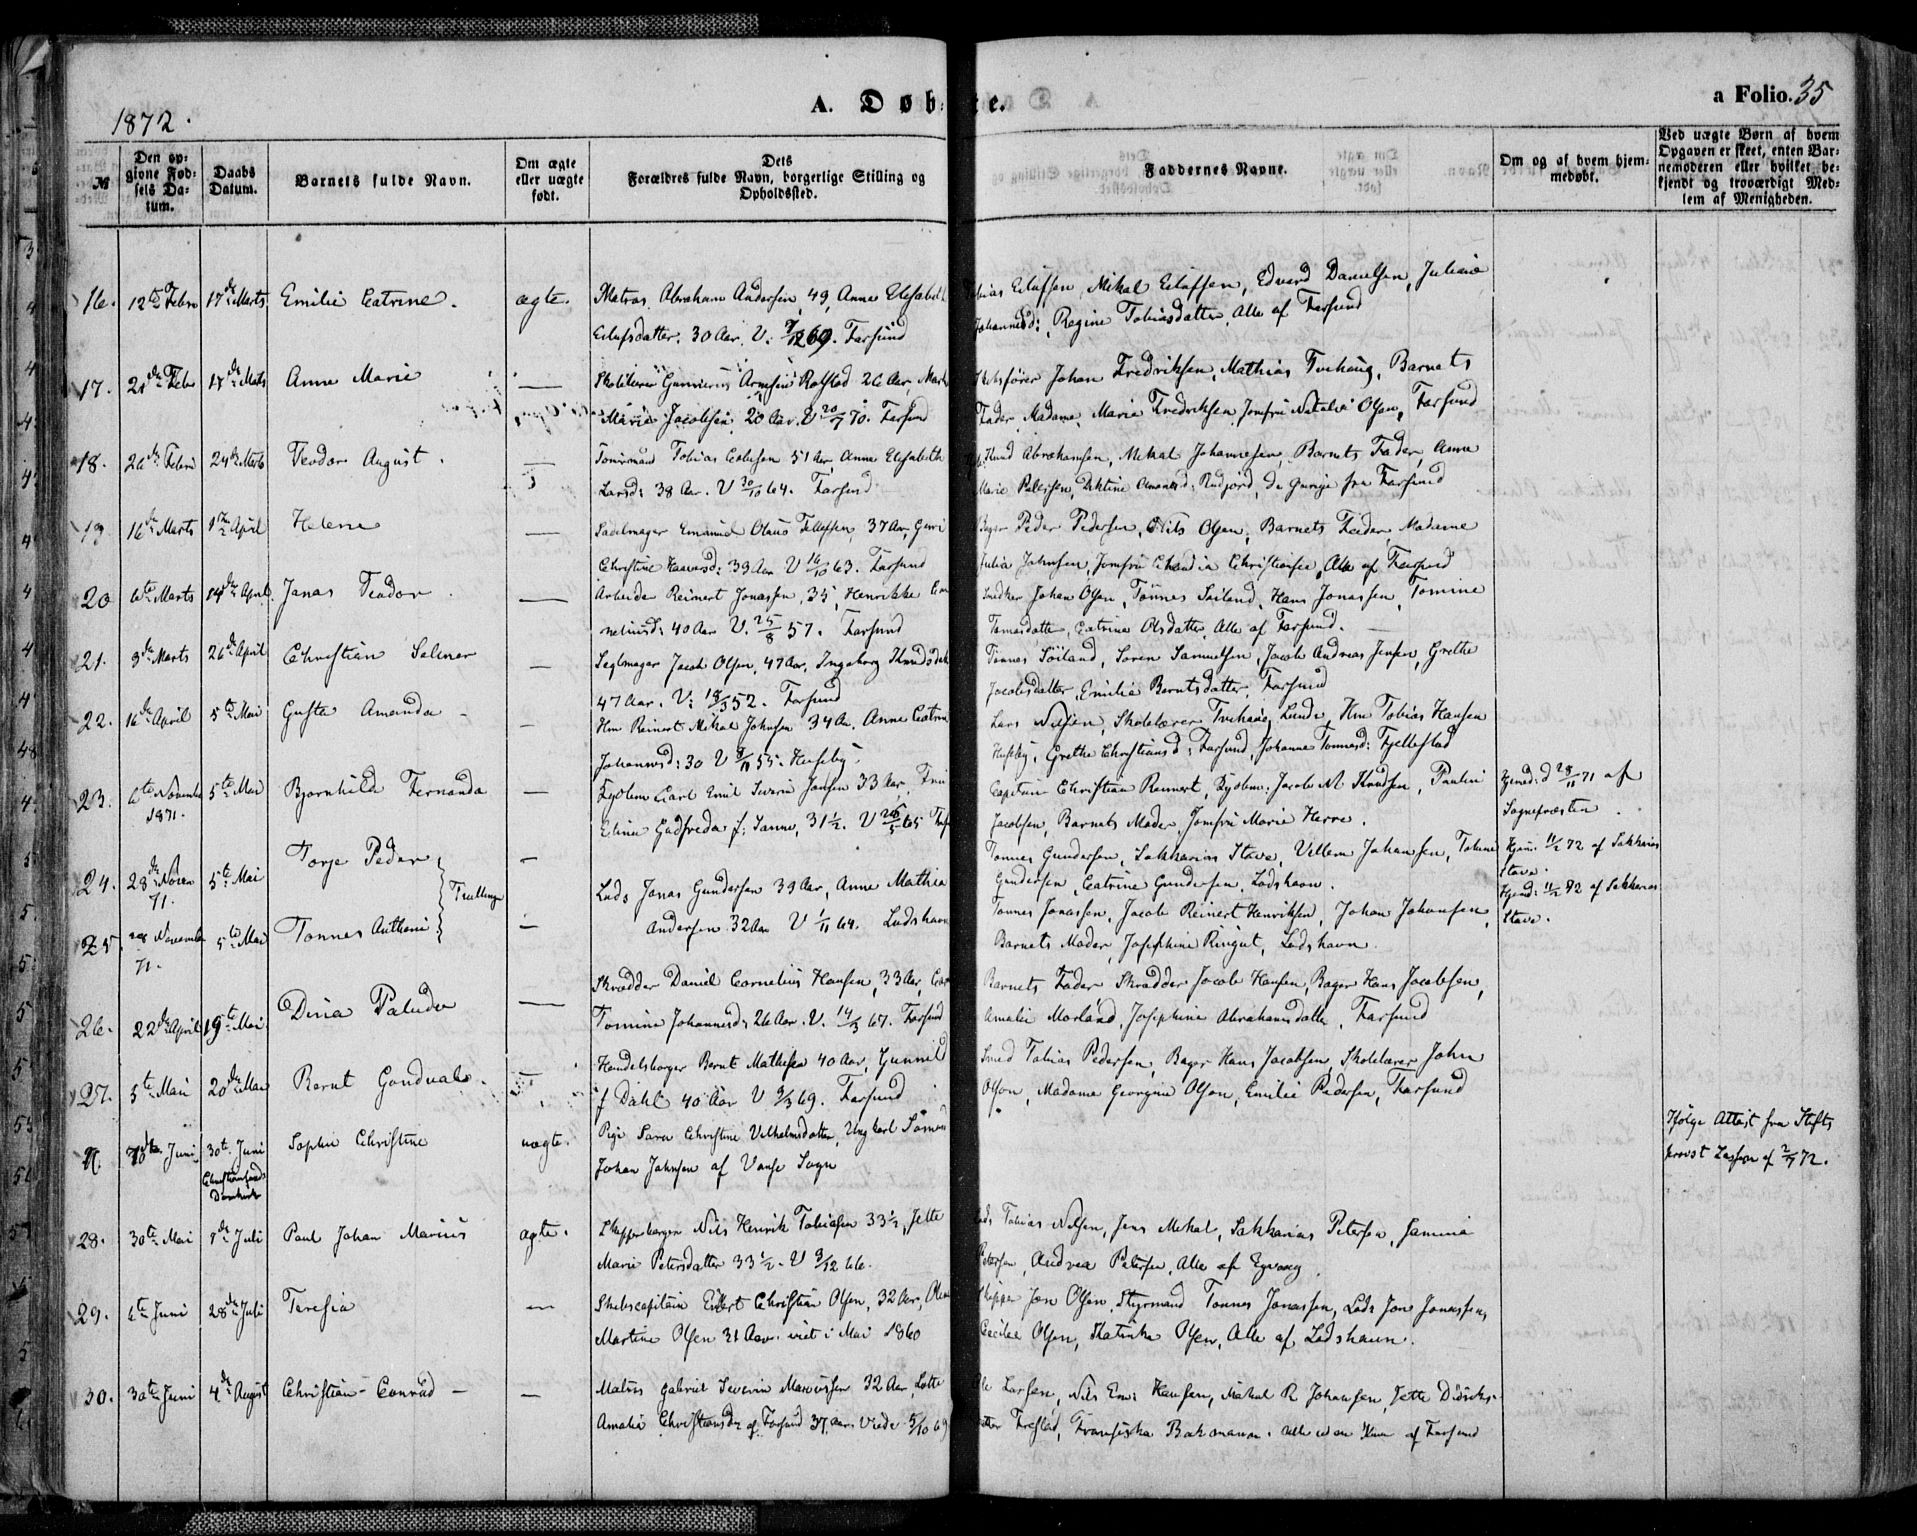 1872.
A. Døbte.
a Folio. 35
№
Den opgivne Fødsels Datum.
Daabs Datum.
Barnets fulde Navn.
Om ægte eller uægte født.
Dets Forældres fulde Navn, borgerlige Stilling og Opholdssted.
Faddernes Navne.
Om og af hvem hjemmedøbt.
Ved uægte Børn af hvem Opgaven er skeet, enten Barnemoderen eller hvilket bekjendt og troværdigt Medlem af Menigheden.
16. 12te Febr 17de Marts Emilie Catrine. ægte. Matros Abraham Andersen, 49, Anne Elisabeth
Eilufsdatter. 30 Aar. V. 69. Farsund
Tobias Eiluffsen, Mikal Eiluffsen, Edvard Danielsen, Juliane
Johannesd:, Regine Tobiasdatter, Alle af Farsund
17. 21de Febr 17de Marts Anne Marie — Skolelærer Gunnerius Arnesen Rolstad 26 Aar,
Marie Jacobsen 20 Aar. V 20/7 70. Farsund
Johan Fredriksen, Mathias Tvehaug, Barnets
Fader, Madame Marie Fredriksen, Jomfru Natalie Olsen, Farsund
18. 26de Febr 24de Marts Teodor August. — Tobias 51 Aar, Anne Elisabeth
Larsd: 38 Aar. V 30/10 64. Farsund
Abrahamsen, Mikal Johannesen, Barnets Fader, Anne
Marie Petersen, Rudjord, de øvrige fra Farsund
19 16de Marts 1ste April Helene — Sadelmager Emanuel Olaus Tellefsen, 37 Aar,
Christine 33 Aar V 16/10 63. Farsund
Bager Peder Pedersen, Nils Olsen, Barnets Fader, Madame
Julia Johnsen, Jomfru Christensen, Alle af Farsund
20 6te Marts 14de April Jonas Teodor. — Arbeider Reinert Jonassen, 35, Henrikke Cor
neliusd: 40 Aar V. 25/8 57. Farsund
Snedker Johan Olsen, Tønnes Søiland, Hans Jonassen, Tomine
Tomasdatter, Catrine Olsdatter, Alle af Farsund.
21. 9de Marts 26de April Christian Selmer — Seglmager Jacob Olsen, 47 Aar, Ingeborg
47 Aar. V: 18/3 52. Farsund
Tønnes Søiland, Søren Samuelsen, Jacob Andreas Jensen, Grethe
Jacobsdatter, Emilie Berntsdatter, Farsund
22. 16de April 5te Mai Gusta Amanda — Hm Reinert Mikal Johnsen 34 Ar, Anne Catrine
Johannesd: 30 V 55. Huseby.
Lars Nilsen, Skolelærer Tvehaug, Lunde, Hm Tobias Hansen
Huseby, Grethe Christiansd: Farsund, Johanne Tønnesd: Fjellestad
23. 6te Novembr 1871. 5te Mai Bjørnhilde Fernanda — Carl Emil Severin Jansen 33 Aar,
Elina Gudfreda f: Sanne, 31½. V 26/5 65
Capitain Christian Reinert, Kjøbm: Jacob M. Knudsen, Pauline
Jacobsen, Barnets Moder, Jomfru Marie Herre.
Hjemd: d 28/11 71 af
Sognepræsten.
24. 28de Noven 71. 5te Mai Torje Peder — Lods Jonas Gundersen 39 Aar, Anne Mathea
Tønnes Gundersen, Sakkarias Stave, Villem Johansen,
Gundersen, Catrine Gundersen, Lodshavn.
Hjem: 11/2 72 af Sakkarias
Stave.
Tvillinge
25. 28 November 71. 5te Mai Tønnes Anthoni — Andersen 32 Aar V 1/11 64. Lodshavn
Tønnes Jonassen, Jacob Reinert Henriksen, Johan Johansen,
Barnets Moder, Josephine Ringut, Lodshavn.
Hjemd: 11/2 72 af Sakkarias
Stave.
26. 22de April 19te Mai Dina Paluda — Skrædder Daniel Cornelius Hansen, 33 Aar,
Tomine Johannesd: 26 Aar. V. 14/3 67. Farsund
Barnets Fader Skrædder Jacob Hansen, Bager Hans Jacobsen,
Amalie Morland, Josephine Abrahamsdatter, Farsund
27. 5te Mai 20de Mai Bernt Gondvald. — Handelsborger Bernt Mathesen 40 Aar, Gunnild
f Dahl 40 Aar V 69. Farsund
Smed Tobias Pedersen, Bager Hans Jacobsen, Skolelærer John
Olson, Madame Georgine Olson, Emilie Pedersen, Farsund
Juni 30te Juni Christianssands Domkirke Sophie Christine uægte. Pige Sara Christine Vilhelmsdatter, Ungkarl Sømand
Johan Johnsen af Vanse Sogn
Ifølge Attest fra Stifts
provst Lassen af 2/7 72.
28. 30te Mai 7de Juli Paul Johan Marius ægte. Skipperborger Nils Henrik Tobiasen 33½, Jette
Marie Petersdatter 33½. V 3/12 66.
Lods Tobias Nilsen, Jens Mikal, Sakkarias Petersen, Jamine
Petersen, Andrea Petersen, Alle af Eyvaag.
29. 6te Juni 28de Juli Taresia — Skibscapitain Evert Christian Olsen, 32 Aar,
Martine Olsen 31 Aar. viet i Mai 1860
Skipper Jon Olsen, Styrmand Tønnes Jonassen, Lods Jens Jonassen,
Cecilie Olsen, Katinka Olsen, Alle af Lodshavn.
30. 30te Juni 4de August Christian Conrad — — Matros Gabriel Severin Marcussen 32 Aar, Lotte
Amalie Christiansdr af Farsund 37 aar Viede 5/10 69
Ole Larsen, Nils Emil Hansen, Mikal R Johansen, Jette Didriks-
datter Frestad, Fransiska Bakmann. alle af Farsund